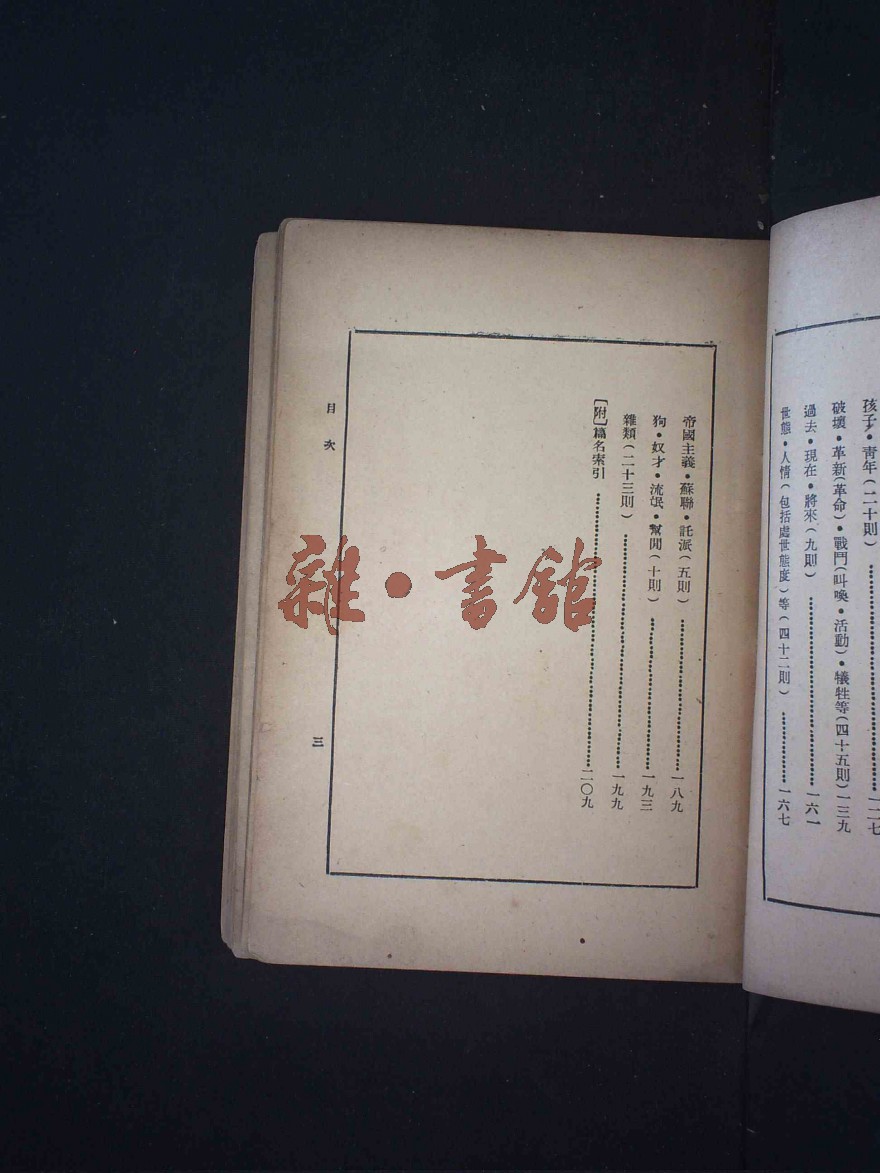 孩子•青年(二十則)………一二七
破壞•革新(革命)•戰鬥(叫喚•活動)•犧牲等(四十五則)一三九
過去•現在•將來(九則)………一六一
世態•人情(包括處世態度)等(四十二則)………一六七
帝國主義•蘇聯•託派(五則)………一八九
狗•奴才•流氓•幫閒(十則)………一九三
雜類(二十三則)………一九九
[附]篇名索引………二〇九
目次
三
雜•書館